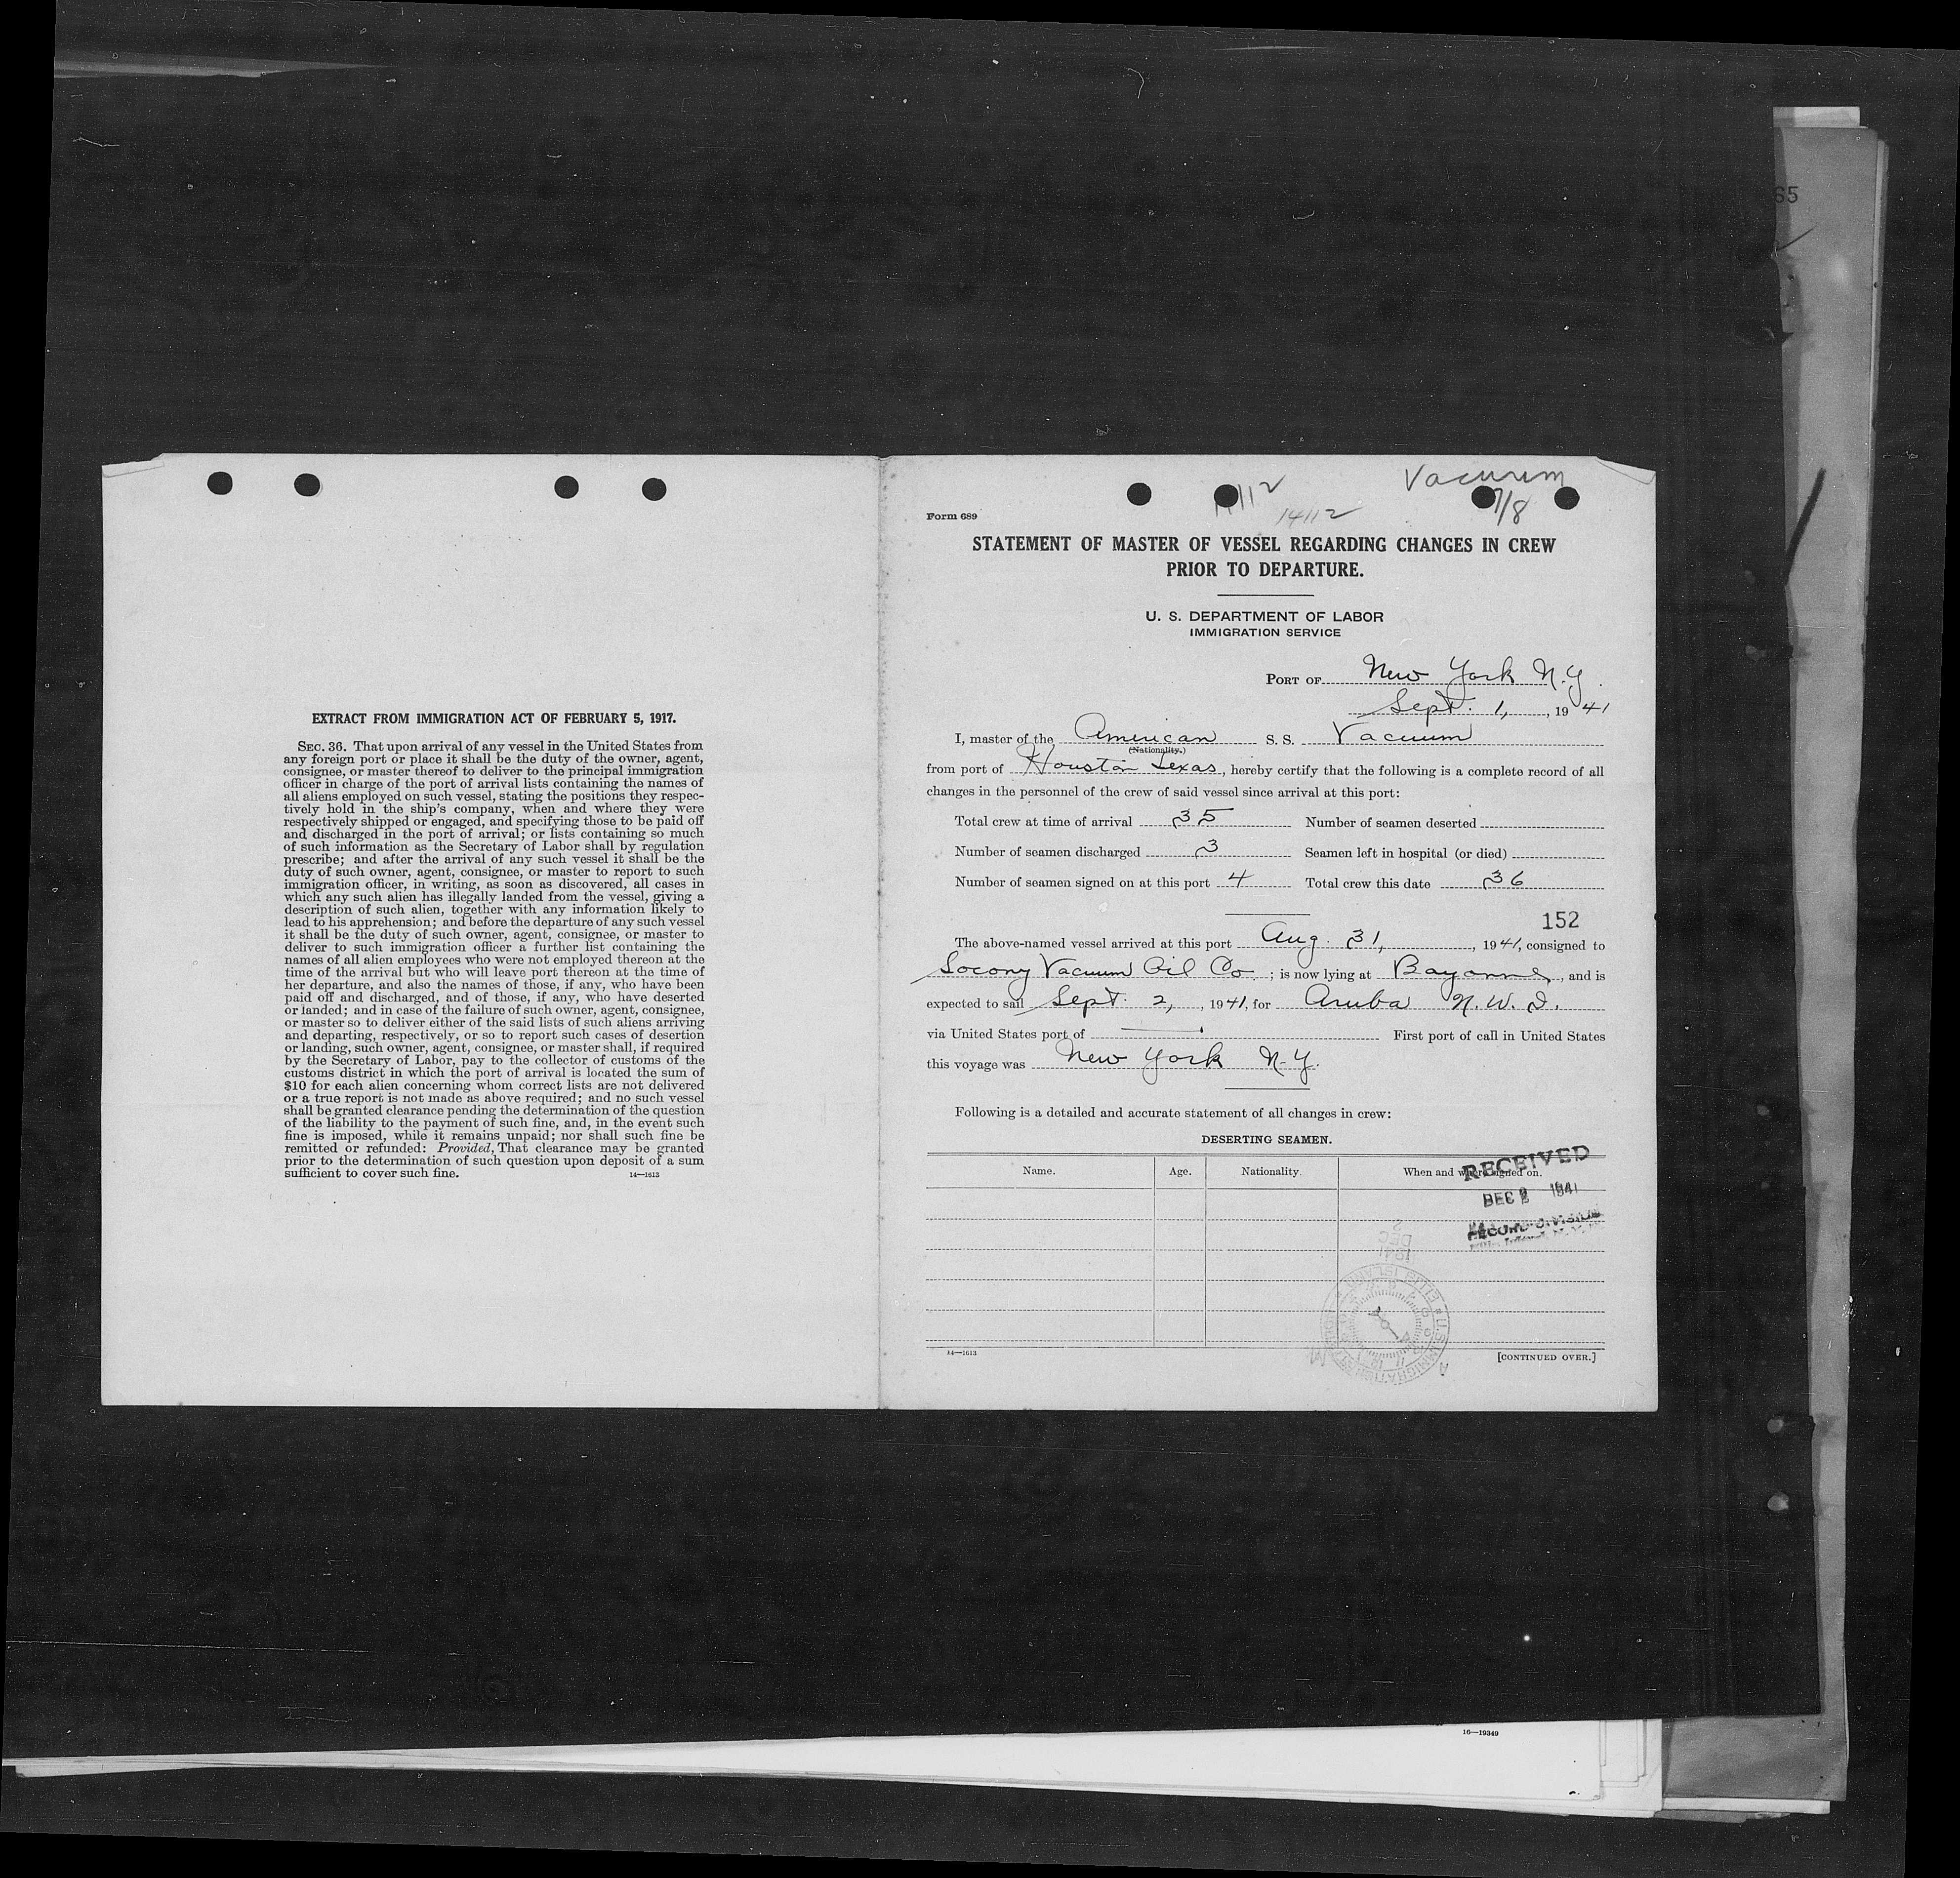 EXTRACT FROM IMMIGRATION ACT OF FEBRUARY 5, 1917.
SEC. 36. That upon arrival of any vessel in the United States from
any foreign port or place it shall be the duty of the owner, agent,
consignee, or master thereof to deliver to the principal immigration
officer in charge of the port of arrival lists containing the names of
all aliens employed on such vessel, stating the positions they respec-
tively hold in the ship's company, when and where they were
respectively shipped or engaged, and specifying those to be paid off
and discharged in the port of arrival; or lists containing so much
of such information as the Secretary of Labor shall by regulation
prescribe; and after the arrival of any such vessel it shall be the
duty of such owner, agent, consignee, or master to report to such
immigration officer, in writing, as soon as discovered, all cases in
which any such alien has illegally landed from the vessel, giving a
description of such alien, together with any information likely to
lead to his apprehension; and before the departure of any such vessel
it shall be the duty of such owner, agent, consignee, or master to
deliver to such immigration officer a further list containing the
names of all alien employees who were not employed thereon at the
time of the arrival but who will leave port thereon at the time of
her departure, and also the names of those, if any, who have been
paid off and discharged, and of those, if any, who have deserted
or landed; and in case of the failure of such owner, agent, consignee,
or master so to deliver either of the said lists of such aliens arriving
and departing, respectively, or so to report such cases of desertion
or landing, such owner, agent, consignee, or master shall, if required
by the Secretary of Labor, pay to the collector of customs of the
customs district in which the port of arrival is located the sum of
$10 for each alien concerning whom correct lists are not delivered
or a true report is not made as above required; and no such vessel
shall be granted clearance pending the determination of the question
of the liability to the payment of such fine, and, in the event such
fine is imposed, while it remains unpaid; nor shall such fine be
remitted or refunded: Provided, That clearance may be granted
prior to the determination of such question upon deposit of a sum
sufficient to cover such fine. 14—1613
Vacuum
7/8
14112
Form 689
STATEMENT OF MASTER OF VESSEL REGARDING CHANGES IN CREW
PRIOR TO DEPARTURE.
U. S. DEPARTMENT OF LABOR
IMMIGRATION SERVICE
PORT OF New York N.Y.
Sept. 1, , 1941
I, master of the American S. S. Vacuum
(Nationality.)
from port of Houston Texas, hereby certify that the following is a complete record of all
changes in the personnel of the crew of said vessel since arrival at this port:
Total crew at time of arrival 35 Number of seamen deserted
Number of seamen discharged 3 Seamen left in hospital (or died)
Number of seamen signed on at this port 4 Total crew this date 36
152
The above-named vessel arrived at this port Aug. 31, , 1941, consigned to
Socony Vacuum Oil Co. ; is now lying at Bayonne, and is
expected to sail Sept. 2, , 1941, for Aruba N. W. I.
via United States port of First port of call in United States
this voyage was New York N-Y.
Following is a detailed and accurate statement of all changes in crew:
DESERTING SEAMEN.
Name. Age. Nationality. When and where signed on.
RECEIVED
DEC 2 1941
RECORD DIVISION
DEC 2
1941
U.S. IMMIGRATION
ELLIS ISLAND
14—1613 [CONTINUED OVER.]
65
16—19349